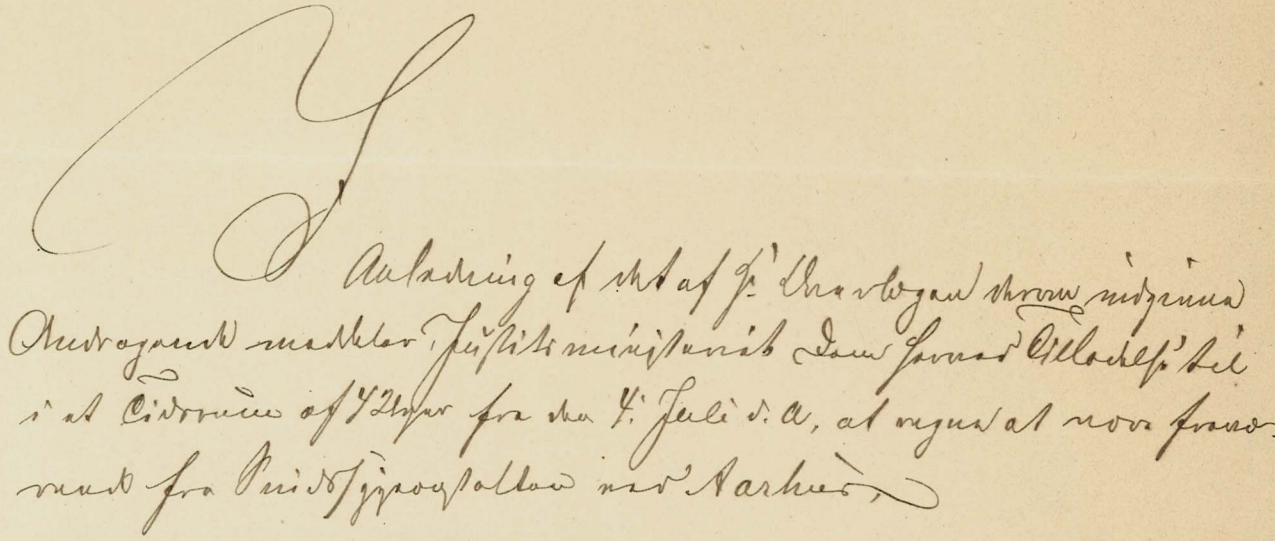 I
Anledning af det af Hr. Overlægen derom indgivne
Andragende meddeler Justitsministeriet Dem herved Tilladelse til
i et Tidsrum af 4 Uger fra den 4. Juli d. A. at regne at være fravæ-
rende fra Sindssygeanstalten ved Aarhus.